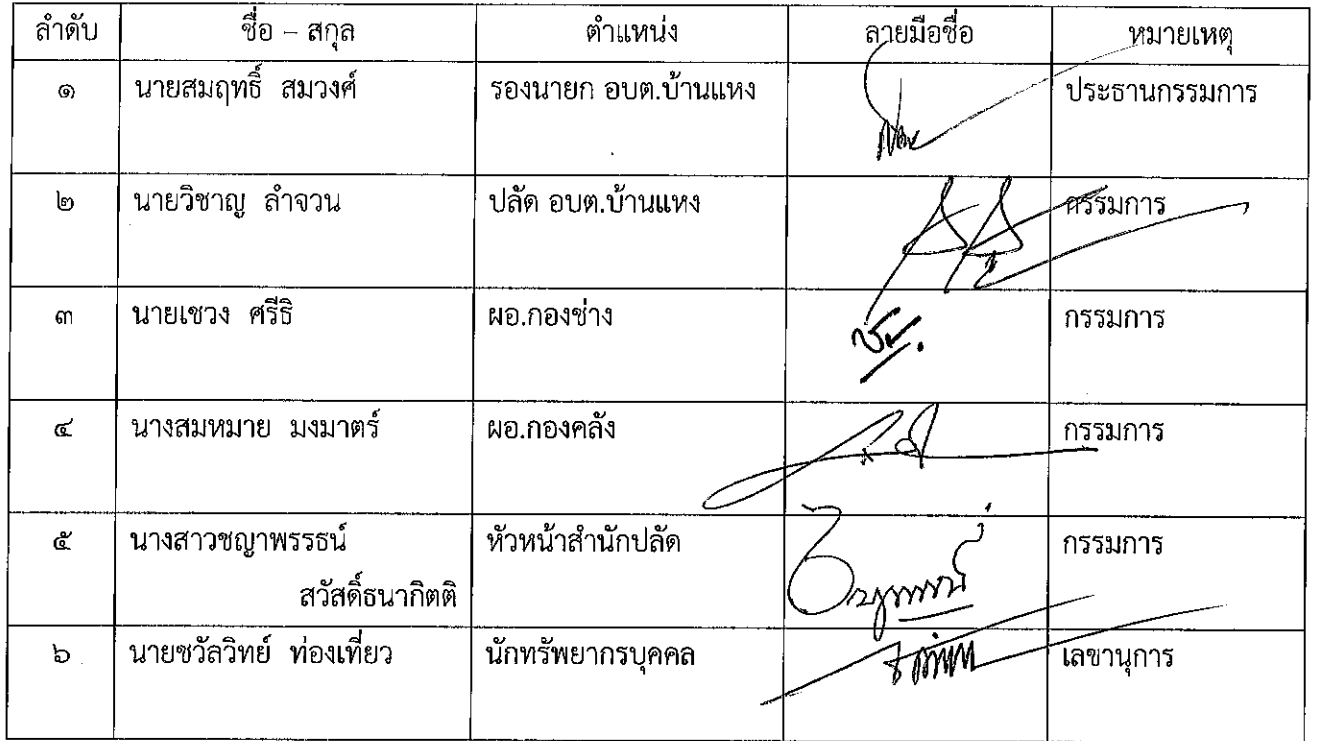 ลำดับ ชื่อ – สกุล ตำแหน่ง ลายมือชื่อ หมายเหตุ
๑ นายสมฤทธิ์ สมวงศ์ รองนายก อบต.บ้านแหง ประธานกรรมการ
๒ นายวิชาญ ลำจวน ปลัด อบต.บ้านแหง กรรมการ
๓ นายเชวง ศรีธิ ผอ.กองช่าง กรรมการ
๔ นางสมหมาย มงมาตร์ ผอ.กองคลัง กรรมการ
๕ นางสาวชญาพรรธน์ หัวหน้าสำนักปลัด กรรมการ
สวัสดิ์ธนากิตติ
๖ นายชวัลวิทย์ ท่องเที่ยว นักทรัพยากรบุคคล เลขานุการ